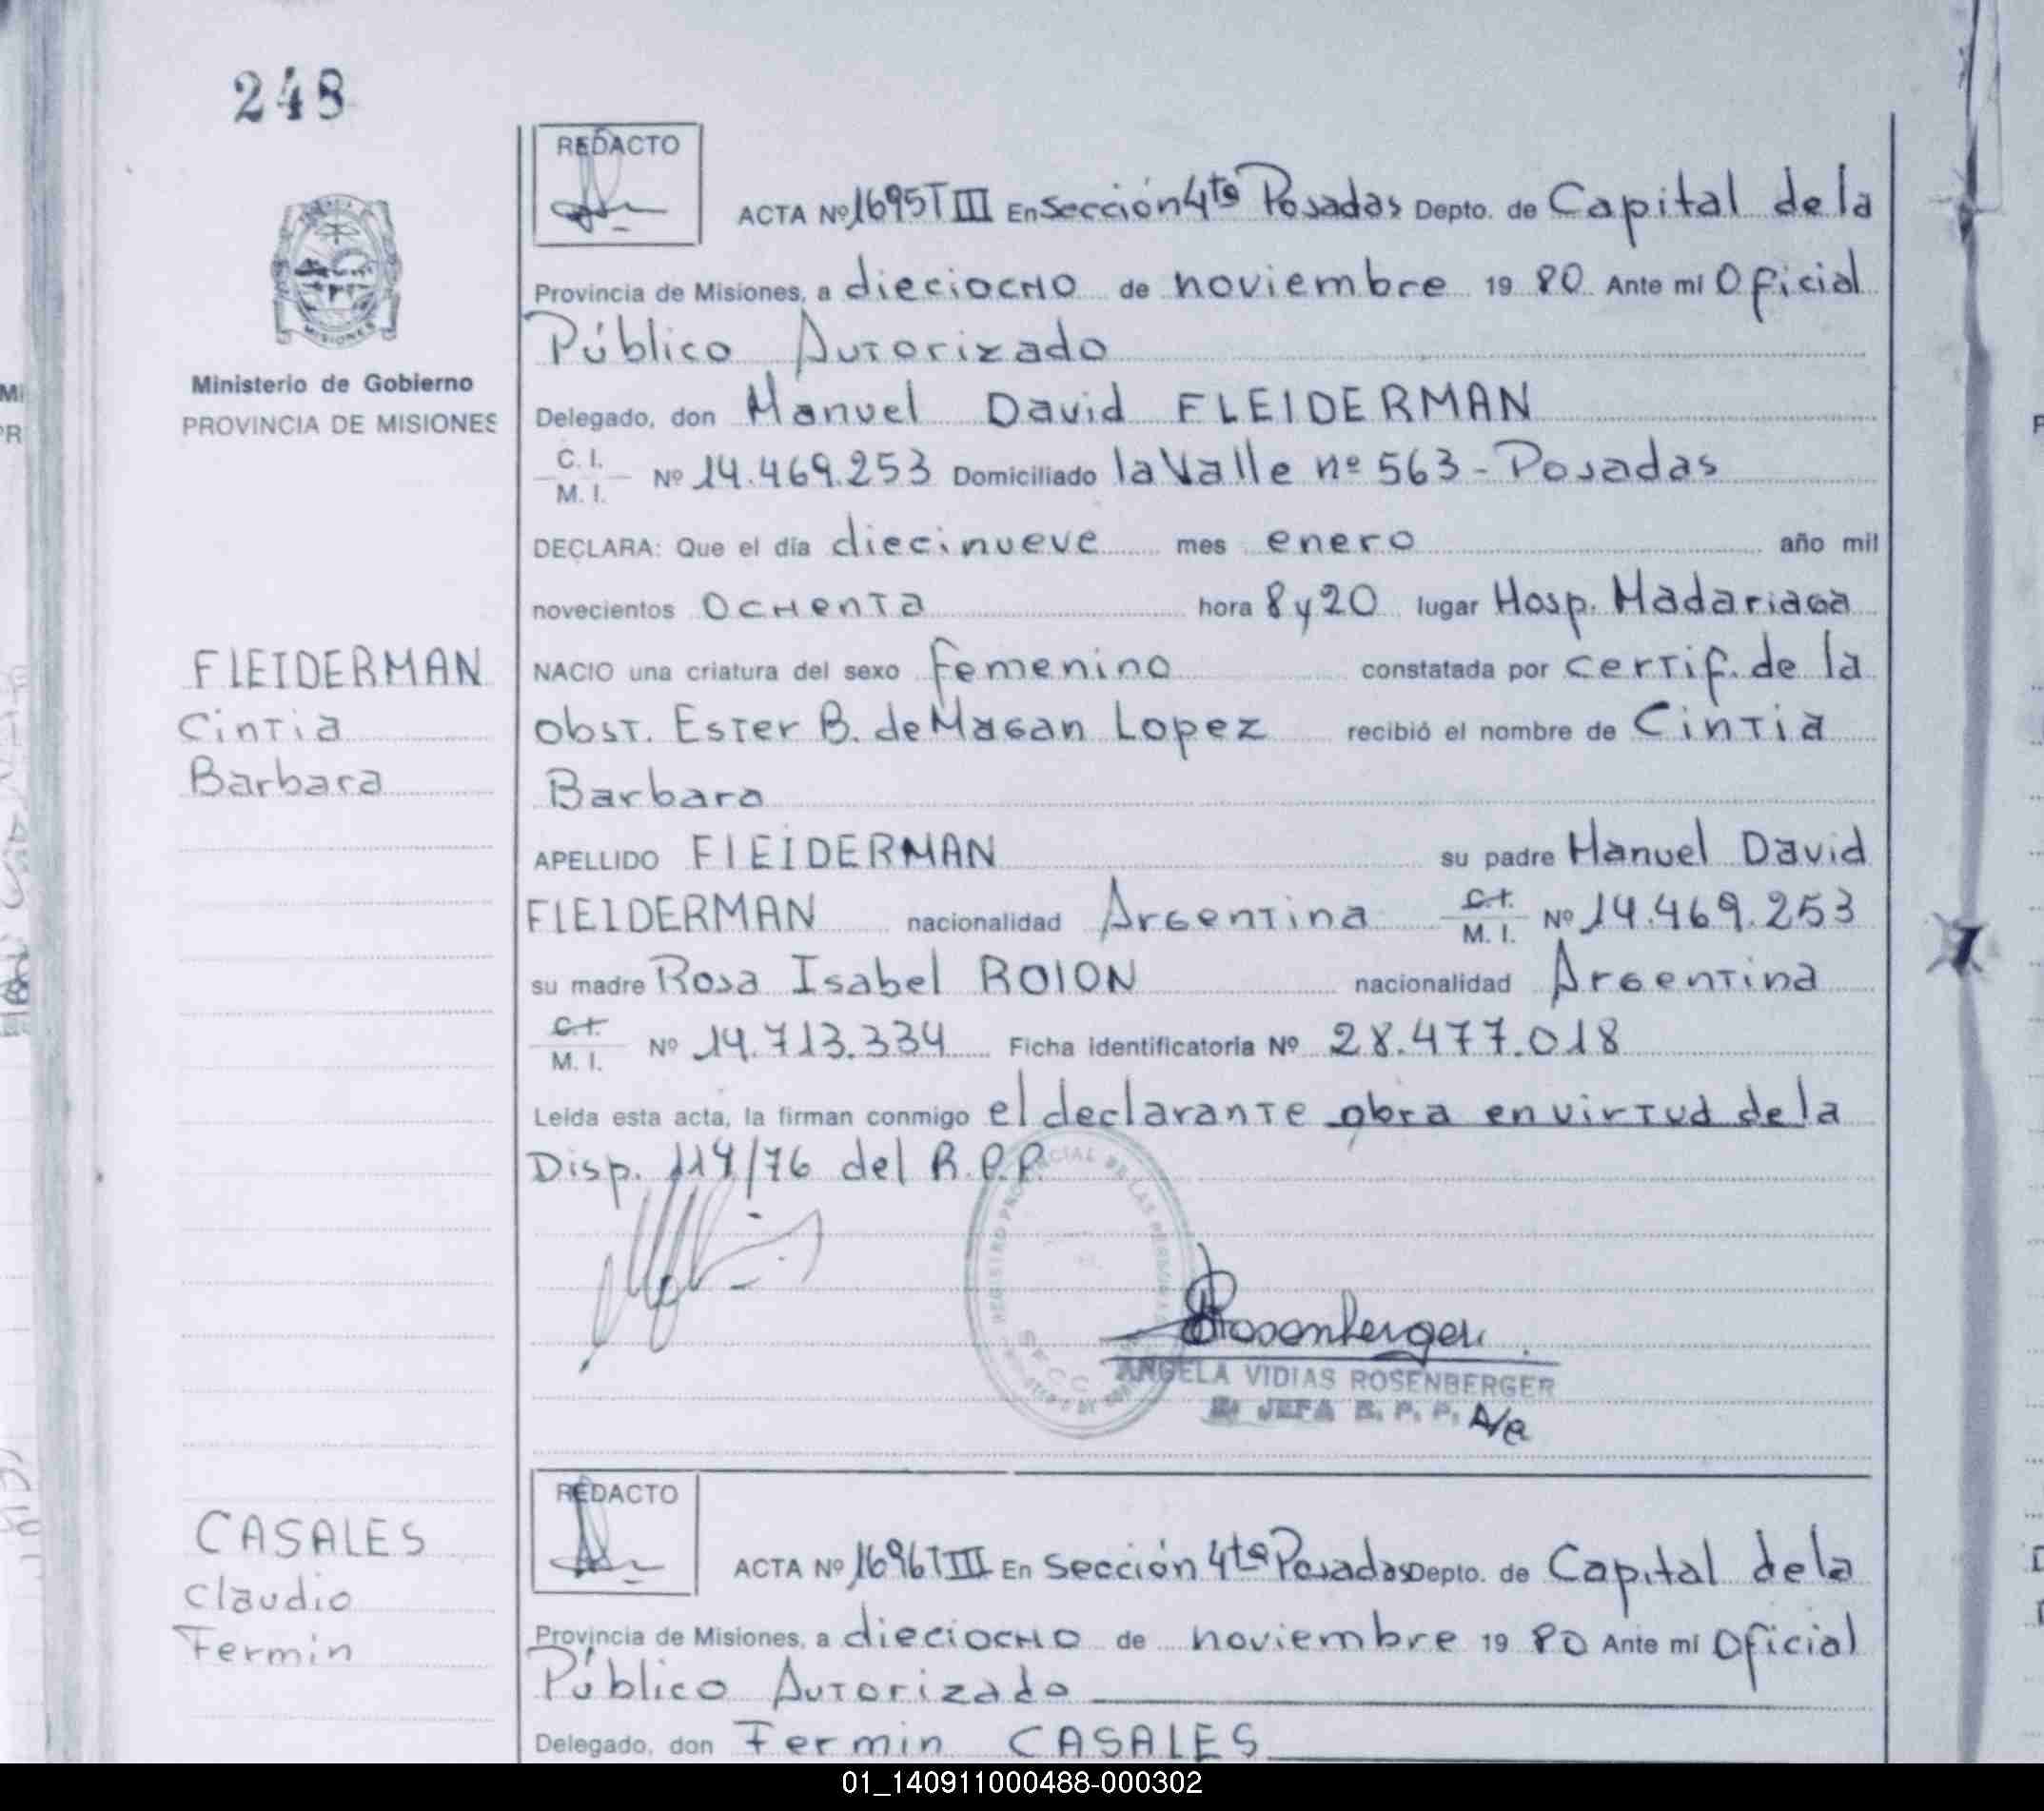 248
REDACTO
ACTA Nº 1695 T III En Sección 4ta Posadas Depto. de Capital de la
Provincia de Misiones, a dieciocho de noviembre 19 80 Ante mí Oficial
Público Autorizado
Ministerio de Gobierno
PROVINCIA DE MISIONES
Delegado, don Manuel David FLEIDERMAN
C. I.
M. I. Nº 14.469.253 Domiciliado la Valle nº 563 - Posadas
DECLARA: Que el día diecinueve mes enero año mil
novecientos ochenta hora 8 y 20 lugar Hosp. Madariaga
FLEIDERMAN
Cintia
Barbara
NACIO una criatura del sexo femenino constatada por certif. de la
obst. Ester B. de Magan Lopez recibió el nombre de Cintia
Barbara
APELLIDO FLEIDERMAN su padre Manuel David
FLEIDERMAN nacionalidad Argentina C.I. M. I. Nº 14.469.253
su madre Rosa Isabel ROION nacionalidad Argentina
C.I.
M. I. Nº 14.713.334 Ficha identificatoria Nº 28.477.018
Leída esta acta, la firman conmigo el declarante obra en virtud de la
Disp. 114/76 del R.P.P.
REGISTRO PROVINCIAL DE LAS PERSONAS
Rosenberger
ANGELA VIDIAS ROSENBERGER
JEFA R. P. P. A/C
CASALES
Claudio
Fermin
REDACTO
ACTA Nº 1696 T III En Sección 4ta Posadas Depto. de Capital de la
Provincia de Misiones, a dieciocho de noviembre 19 80 Ante mí Oficial
Público Autorizado
Delegado, don Fermin CASALES
01_140911000488-000302